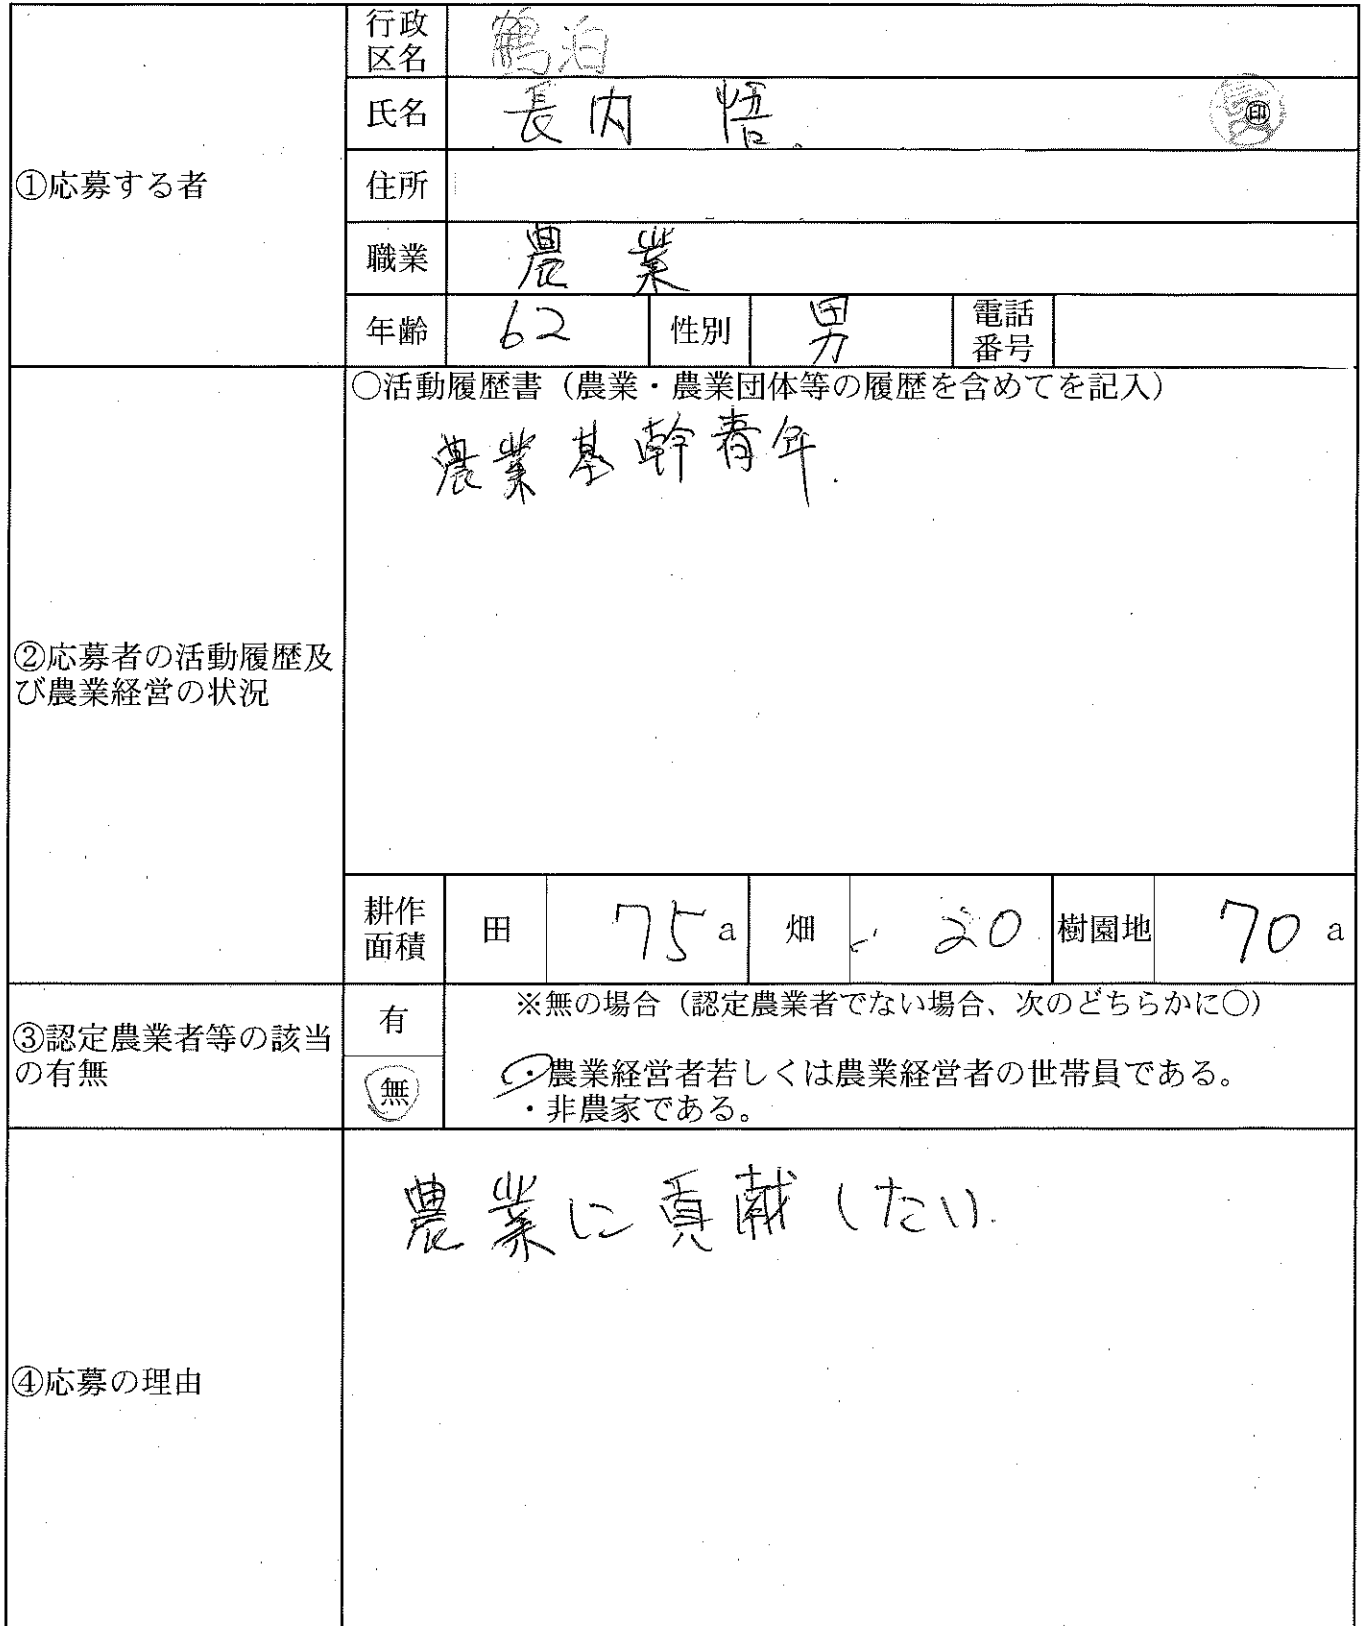 ①応募する者
行政
区名
鶴泊
氏名
長内 悟
㊞
住所
職業
農業
年齢
62
性別
男
電話
番号
②応募者の活動履歴及
び農業経営の状況
○活動履歴書（農業・農業団体等の履歴を含めてを記入）
農業基幹青年.
耕作
面積
田
75a
畑
20
樹園地
70a
③認定農業者等の該当
の有無
有
無
※無の場合（認定農業者でない場合、次のどちらかに○）
・農業経営者若しくは農業経営者の世帯員である。
・非農家である。
④応募の理由
農業に貢献したい.